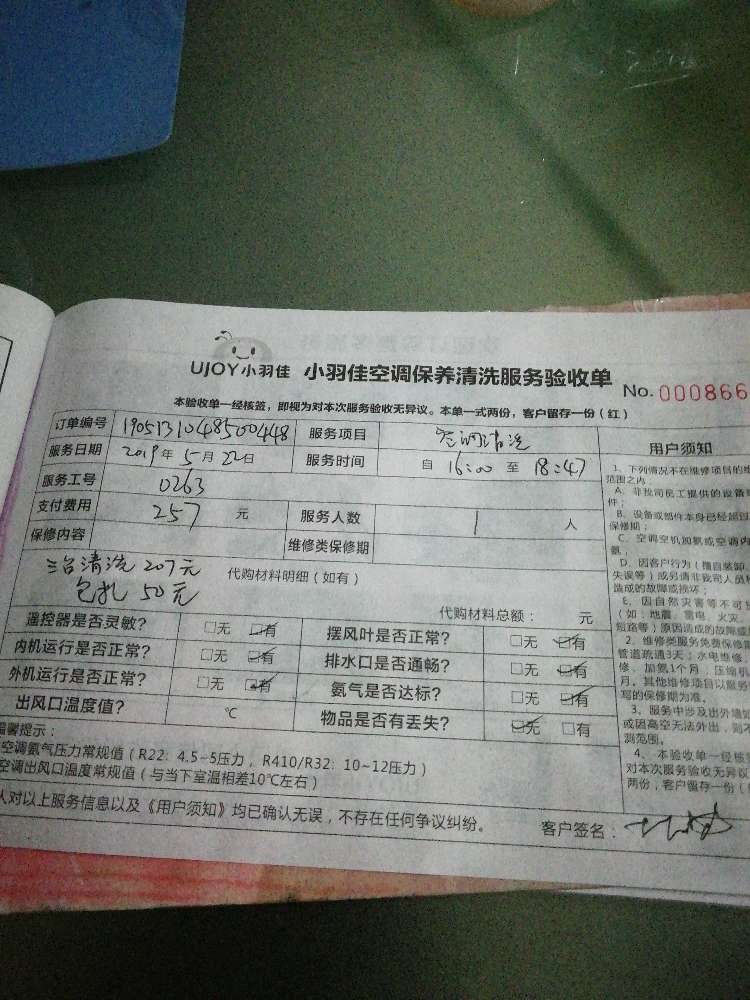 UJOY小羽佳 小羽佳空调保养清洗服务验收单 No. 000866
本验收单一经核签，即视为对本次服务验收无异议。本单一式两份，客户留存一份（红）
订单编号 1905131048500448 服务项目 空调清洗
服务日期 2019年5月22日 服务时间 自 16:00 至 18:47
服务工号 0263
支付费用 257 元 服务人数 1 人
保修内容 维修类保修期
三台清洗 207元 代购材料明细（如有）
包扎 50元
代购材料总额： 元
遥控器是否灵敏？ □无 □有 摆风叶是否正常？ □无 □有
内机运行是否正常？ □无 □有 排水口是否通畅？ □无 □有
外机运行是否正常？ □无 □有 氨气是否达标？ □无 □有
出风口温度值？ ℃ 物品是否有丢失？ □无 □有
温馨提示：
空调氨气压力常规值（R22：4.5~5压力，R410/R32：10~12压力）
空调出风口温度常规值（与当下室温相差10℃左右）
人对以上服务信息以及《用户须知》均已确认无误，不存在任何争议纠纷。 客户签名：
用户须知
1、下列情况不在维修项目的
范围之内
A、非我司员工提供的设备
件；
B、设备或部件本身已经超过
保修期；
C、空调空机加氨或空调内
氨，
D、因客户行为（擅自装卸
失误等）或另请非我司人员
造成的故障或损坏；
E、因自然灾害等不可
（如：地震、雷电、火灾、
短路等）原因造成的故障或
2、维修类服务免费保修
管道疏通3天；水电维修
修、加氨1个月，压缩机
月。其他维修项目以服务
写的保修期为准。
3、服务中涉及出外墙
或因高空无法外出，则不
测范围。
4、本验收单一经核
对本次服务验收无异议
两份，客户留存一份（